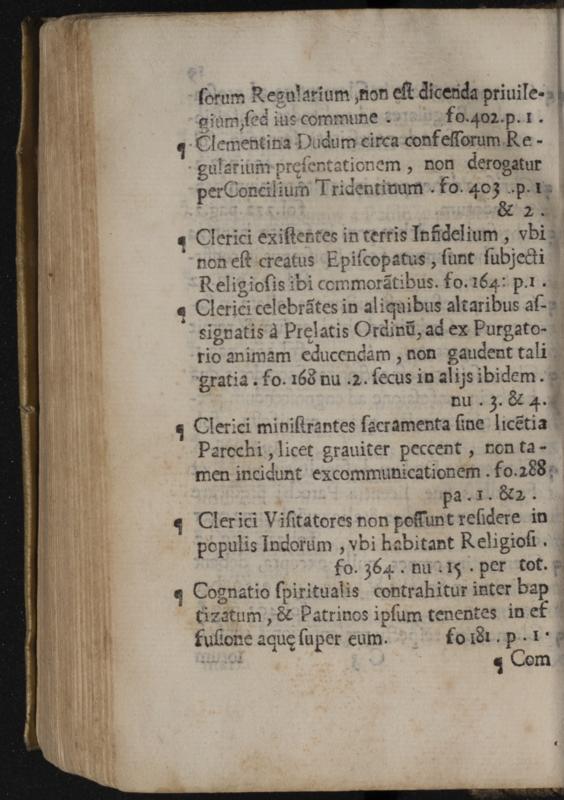 ſorum Regularium ,non eſt dicenda priuile-
gium,ſed ius commune . fo.402.p. 1 .
¶ Clementina Dudum circa confeſſorum Re -
gularium pręſentationem , non derogatur
perConcilium Tridentinum . fo. 403 .p. 1
& 2 .
¶ Clerici exiſtentes in terris Infidelium , vbi
non eſt creatus Epiſcopatus , ſunt ſubjecti
Religioſis ibi commorãtibus. fo. 164: p.1 .
¶ Clerici celebrãtes in aliquibus altaribus aſ-
signatis à Pręlatis Ordinũ, ad ex Purgato-
rio animam educendam , non gaudent tali
gratia . fo. 168 nu .2. ſecus in alijs ibidem .
nu . 3. & 4.
¶ Clerici miniſtrantes ſacramenta ſine licẽtia
Parochi , licet grauiter peccent , non ta -
men incidunt excommunicationem . fo.288
pa . 1 . &2 .
¶ Clerici Viſitatores non poſſunt reſidere in
populis Indorum , vbi habitant Religioſi .
fo. 364 . nu . 15 . per tot.
¶ Cognatio ſpiritualis contrahitur inter bap
tizatum , & Patrinos ipſum tenentes in ef
fuſione aquę ſuper eum. fo 181 . p . 1 .
¶ Com